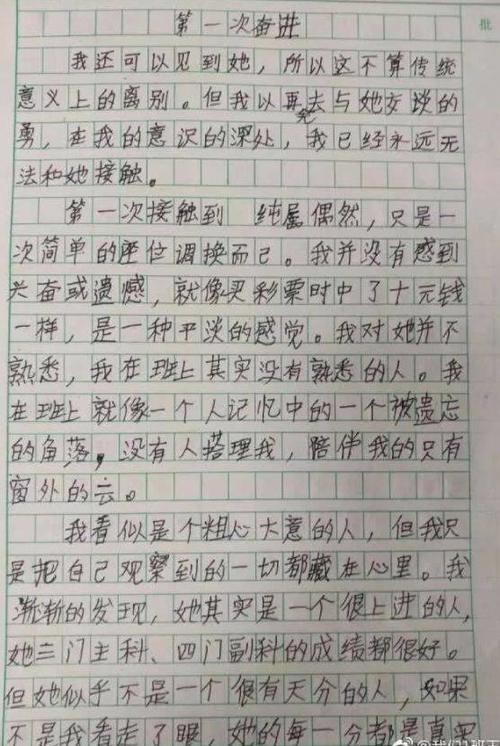 第一次奋进
批
我还可以见到她，所以这不算传统
意义上的离别。但我以再去与她交谈的
勇，在我的意识的深处，我已经永远无
法和她接触。
第一次接触到 纯属偶然，只是一
次简单的座位调换而已。我并没有感到
兴奋或遗憾，就像买彩票时中了十元钱
一样，是一种平淡的感觉。我对她并不
熟悉，我在班上其实没有熟悉的人。我
在班上就像一个人记忆中的一个被遗忘
的角落，没有人搭理我，陪伴我的只有
窗外的云。
我看似是个粗心大意的人，但我只
是把自己观察到的一切都藏在心里。我
渐渐的发现，她其实是一个很上进的人，
她三门主科、四门副科的成绩都很好。
但她似乎不是一个很有天分的人，如果
不是我看走了眼，她的每一分都是真实